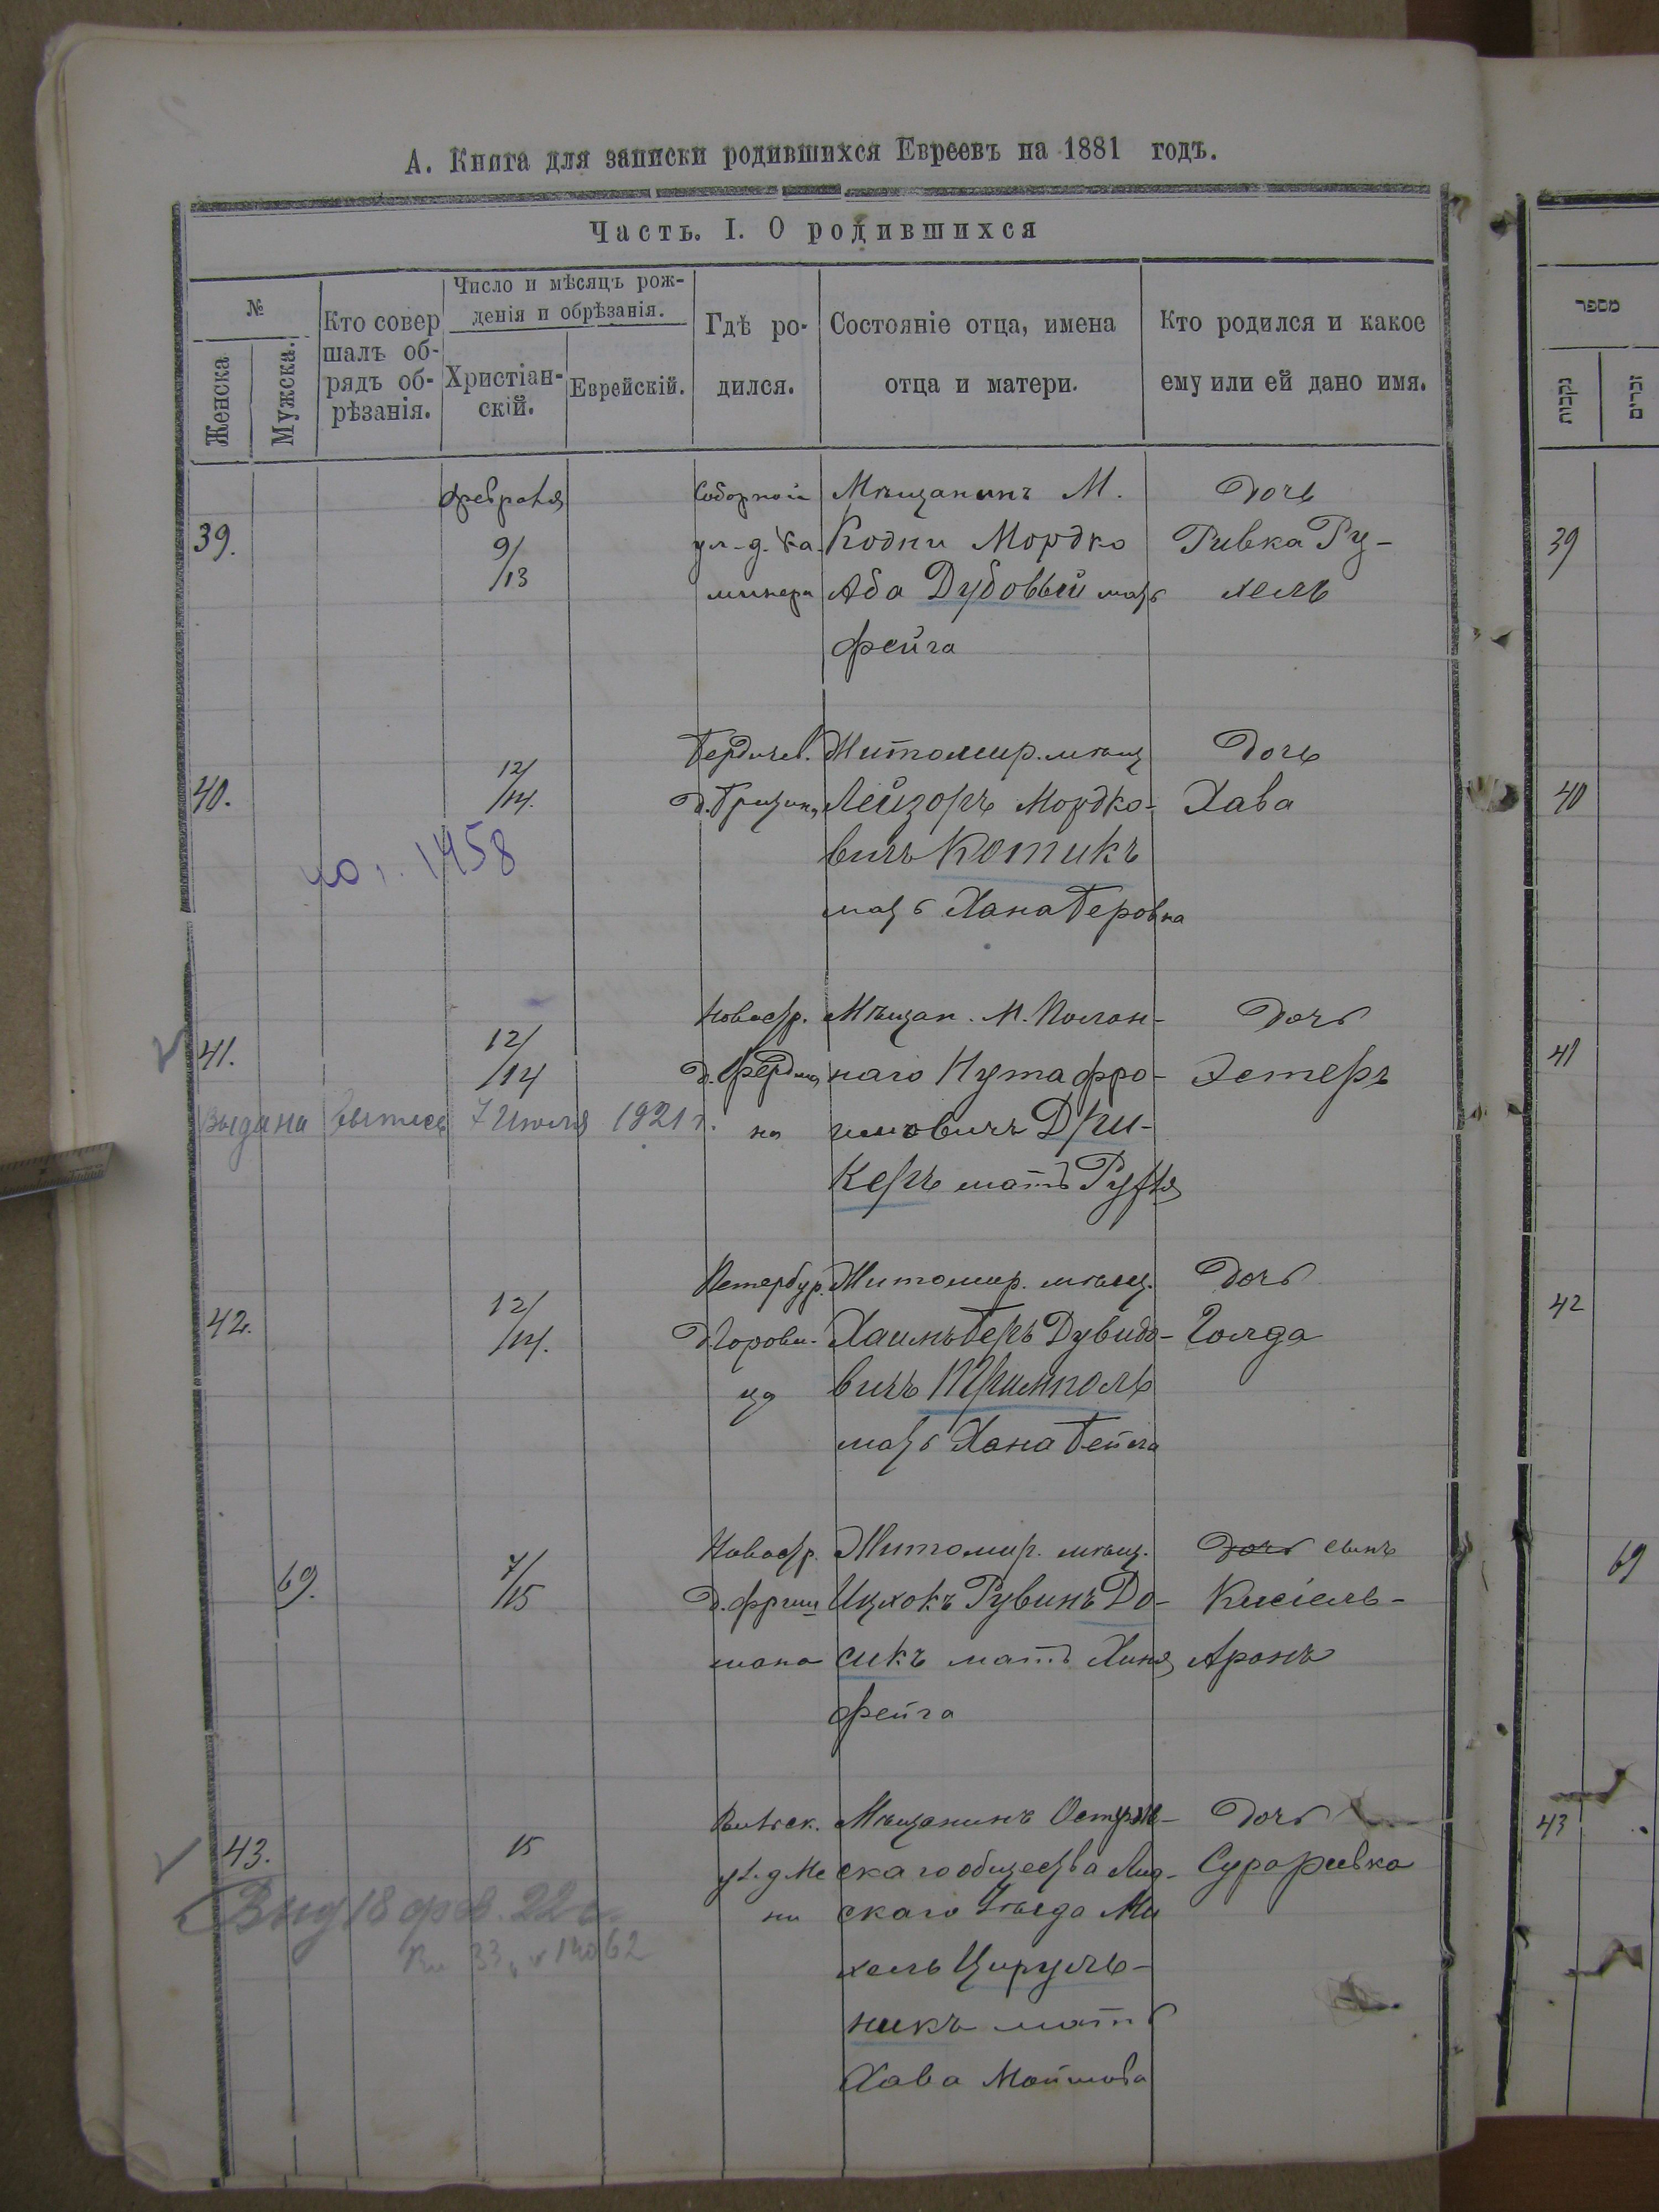 А. Книга для записки родившихся Евреевъ на 1881 годъ.
Часть. I. О родившихся
№
Женска
Мужска.
Кто совер
шалъ об-
рядъ об-
рѣзанія.
Число и мѣсяцъ рож-
денія и обрѣзанія.
Христіан-
скій.
Еврейскій.
Гдѣ ро-
дился.
Состояніе отца, имена
отца и матери.
Кто родился и какое
ему или ей дано имя.
39.
февраля
9/13
Соборной
ул. д. Ка-
минера
Мѣщанинъ М.
Кодни Мордко
Аба Дубовый мать
Фейга
Дочь
Ривка Ру-
хель
40.
12/14.
Бердичев.
Житомир. мѣщ
Лейзоръ Мордко-
вичъ Котикъ
мать Хана Беровна
Дочь
Хава
1458
41.
12/14
Новостр.
на
Мѣщан. М. Полон-
наго Нута Фро-
имовичъ Дри-
керъ мать Рухля
Дочь
Эстеръ
Выдана выпись 7 Июля 1921 г.
42.
12/14.
Петербур.
д. Горови-
ца
Житомир. мѣщ.
Хаимъ Беръ Дувидо-
вичъ
мать Хана Бейла
Дочь
Голда
69.
7/15
Новостр.
д. Фриш
мана
Житомир. мѣщ.
Ицхокъ Рувинъ До-
сикъ мать Хиня
Фейга
Дочь сынъ
Кисіель-
Аронъ
43.
15
Вильск.
ул. д. Ме
ни
Мѣщанинъ
скаго общества Лид-
скаго Уѣзда Ми
хель Цируль-
никъ мать
Хава Мойшова
Дочь
Сура Ривка
Выд 18 фев. 22 г.
מספר
נקבות
זכרים
39
40
41
42
69
43